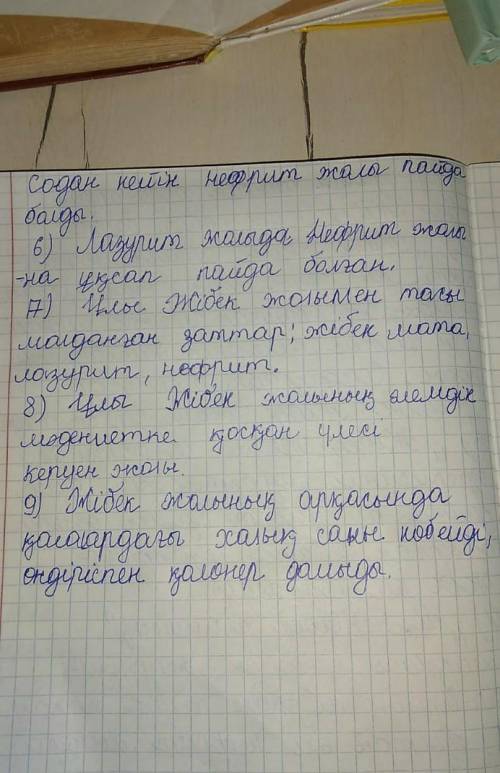 Содан кейін нефрит жолы пайда
болды.
6) Лазурит жолыда Нефрит жолы
-на ұқсап пайда болған.
7) Ұлы Жібек жолымен тасы
малданған заттар; жібек мата,
лазурит, нефрит.
8) Ұлы Жібек жолының әлемдік
мәдениетке қосқан үлесі
керуен жолы.
9) Жібек жолының арқасында
қалалардағы халық саны көбейді,
өндіріспен қолөнер дамыды.